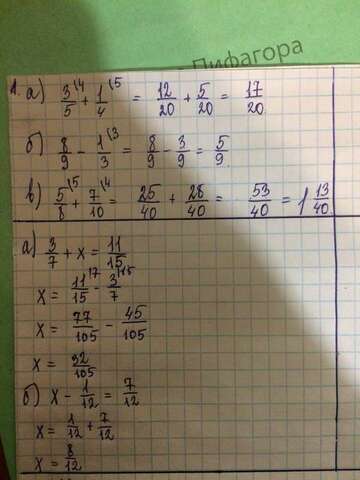 Пифагора
1. а) 3/5 (4 + 1/4 (5 = 12/20 + 5/20 = 17/20
б) 8/9 - 1/3 (3 = 8/9 - 3/9 = 5/9
в) 5/8 (5 + 7/10 (4 = 25/40 + 28/40 = 53/40 = 1 13/40
а) 3/7 + x = 11/15
x = 11/15 (7 - 3/7 (15
x = 77/105 - 45/105
x = 32/105
б) x - 1/12 = 7/12
x = 1/12 + 7/12
x = 8/12